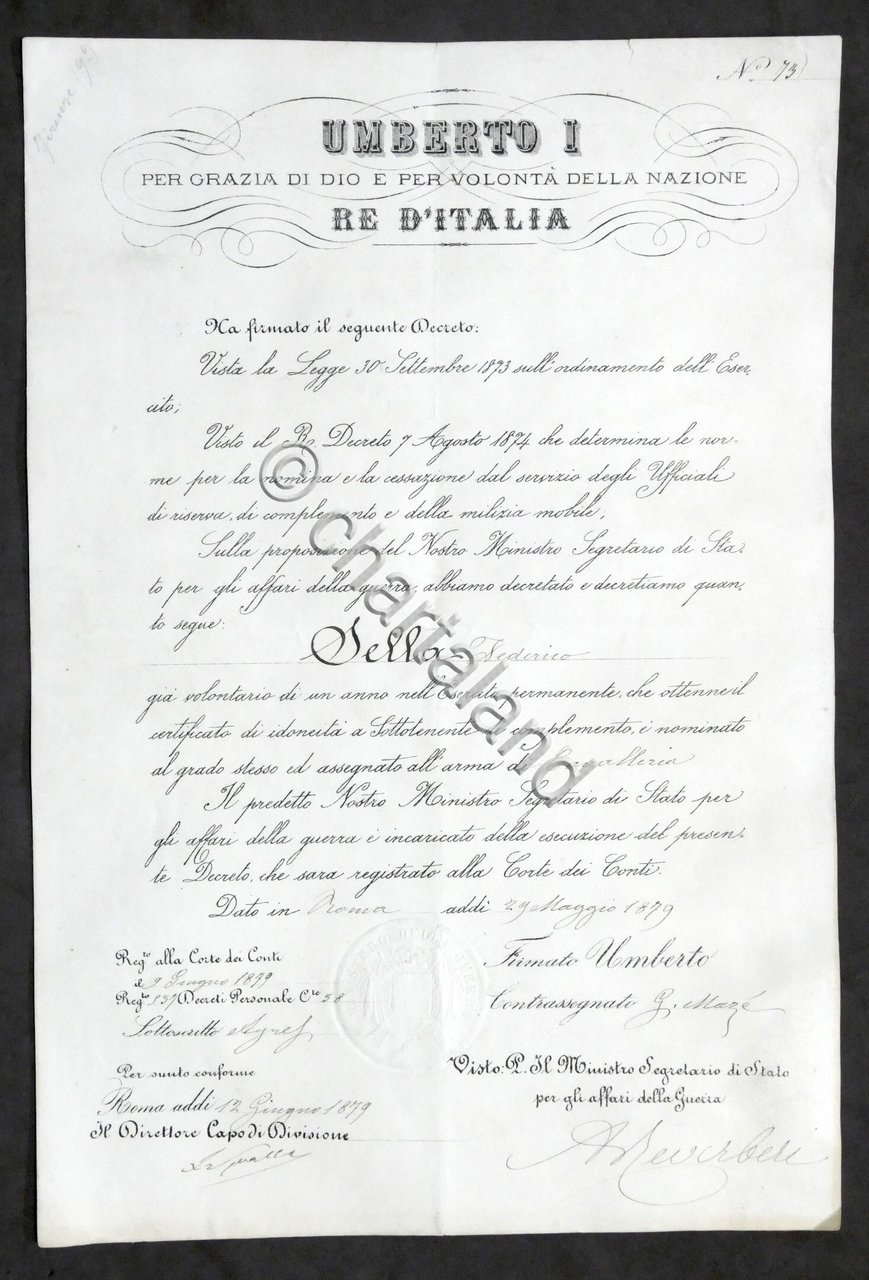 Firenze 9º
Nº 73
UMBERTO I
PER GRAZIA DI DIO E PER VOLONTÀ DELLA NAZIONE
RE D'ITALIA
Ha firmato il seguente Decreto:
Vista la Legge 30 Settembre 1873 sull'ordinamento dell'Eser-
cito;
Visto il R. Decreto 7 Agosto 1874 che determina le nor-
me per la nomina e la cessazione dal servizio degli Ufficiali
di riserva, di complemento e della milizia mobile;
Sulla proposizione del Nostro Ministro Segretario di Sta-
to per gli affari della guerra; abbiamo decretato e decretiamo quan-
to segue:
Sella Federico
già volontario di un anno nell'Esercito permanente, che ottenne il
certificato di idoneità a Sottotenente di complemento, è nominato
al grado stesso ed assegnato all'arma di Cavalleria
Il predetto Nostro Ministro Segretario di Stato per
gli affari della guerra è incaricato della esecuzione del presen-
te Decreto, che sarà registrato alla Corte dei Conti.
Dato in Roma addì 29 Maggio 1879
Regto alla Corte dei Conti
il 9 Giugno 1879
Regto 131 Decreti Personale Cte 38
Sottoscritto Ayres
Firmato Umberto
Contrassegnato G. Mazé
Per sunto conforme
Roma addì 12 Giugno 1879
Il Direttore Capo di Divisione
Visto: P. Il Ministro Segretario di Stato
per gli affari della Guerra
A Reverberi
© chartaland